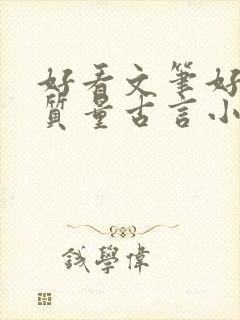 好看文筆好
質量古言小
錢學偉